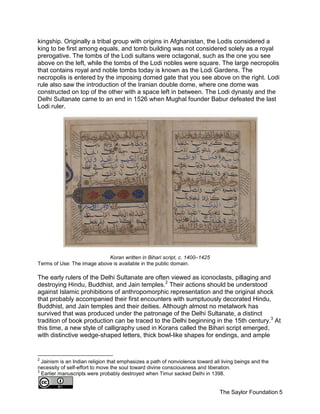 kingship. Originally a tribal group with origins in Afghanistan, the Lodis considered a
king to be first among equals, and tomb building was not considered solely as a royal
prerogative. The tombs of the Lodi sultans were octagonal, such as the one you see
above on the left, while the tombs of the Lodi nobles were square. The large necropolis
that contains royal and noble tombs today is known as the Lodi Gardens. The
necropolis is entered by the imposing domed gate that you see above on the right. Lodi
rule also saw the introduction of the Iranian double dome, where one dome was
constructed on top of the other with a space left in between. The Lodi dynasty and the
Delhi Sultanate came to an end in 1526 when Mughal founder Babur defeated the last
Lodi ruler.
Koran written in Bihari script, c. 1400–1425
Terms of Use: The image above is available in the public domain.
The early rulers of the Delhi Sultanate are often viewed as iconoclasts, pillaging and
destroying Hindu, Buddhist, and Jain temples.2 Their actions should be understood
against Islamic prohibitions of anthropomorphic representation and the original shock
that probably accompanied their first encounters with sumptuously decorated Hindu,
Buddhist, and Jain temples and their deities. Although almost no metalwork has
survived that was produced under the patronage of the Delhi Sultanate, a distinct
tradition of book production can be traced to the Delhi beginning in the 15th century.3 At
this time, a new style of calligraphy used in Korans called the Bihari script emerged,
with distinctive wedge-shaped letters, thick bowl-like shapes for endings, and ample
2 Jainism is an Indian religion that emphasizes a path of nonviolence toward all living beings and the
necessity of self-effort to move the soul toward divine consciousness and liberation.
3 Earlier manuscripts were probably destroyed when Timur sacked Delhi in 1398.
The Saylor Foundation 5